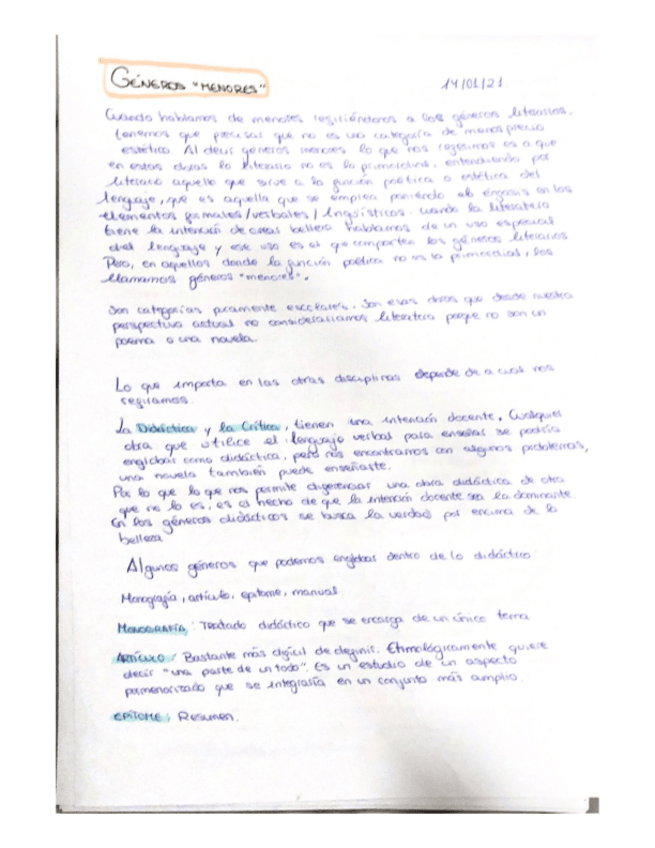 GÉNEROS "MENORES"
14/01/21
Cuando hablamos de menores refiriéndonos a los géneros literarios,
tenemos que precisar que no es una categoría de menosprecio
estético. Al decir géneros menores lo que nos referimos es a que
en estas obras lo literario no es lo primordial, entendiendo por
literario aquello que sirve a la función poética o estética del
lenguaje, que es aquella que se emplea poniendo el énfasis en los
elementos formales/verbales/lingüísticos. Cuando la literatura
tiene la intención de crear belleza hablamos de un uso especial
del lenguaje y ese uso es el que comparten los géneros literarios
Pero, en aquellos donde la función poética no es la primordial, los
llamamos géneros "menores".
Son categorías puramente escolares. Son esas obras que desde nuestra
perspectiva actual no consideraríamos literatura porque no son un
poema o una novela.
Lo que importa en las otras disciplinas depende de a cual nos
refiramos.
La Didáctica y la Crítica, tienen una intención docente. Cualquier
obra que utilice el lenguaje verbal para enseñar se podría
englobar como didáctica, pero nos encontramos con algunos problemas,
una novela también puede enseñarte.
Por lo que lo que nos permite diferenciar una obra didáctica de otra
que no lo es, es el hecho de que la intención docente sea la dominante.
En los géneros didácticos se busca la verdad por encima de la
belleza
Algunos géneros que podemos englobar dentro de lo didáctico
Monografía, artículo, epítome, manual
MONOGRAFÍA: Tratado didáctico que se encarga de un único tema
ARTÍCULO: Bastante más difícil de definir. Etimológicamente quiere
decir "una parte de un todo". Es un estudio de un aspecto
pormenorizado que se integraría en un conjunto más amplio.
EPÍTOME: Resumen.